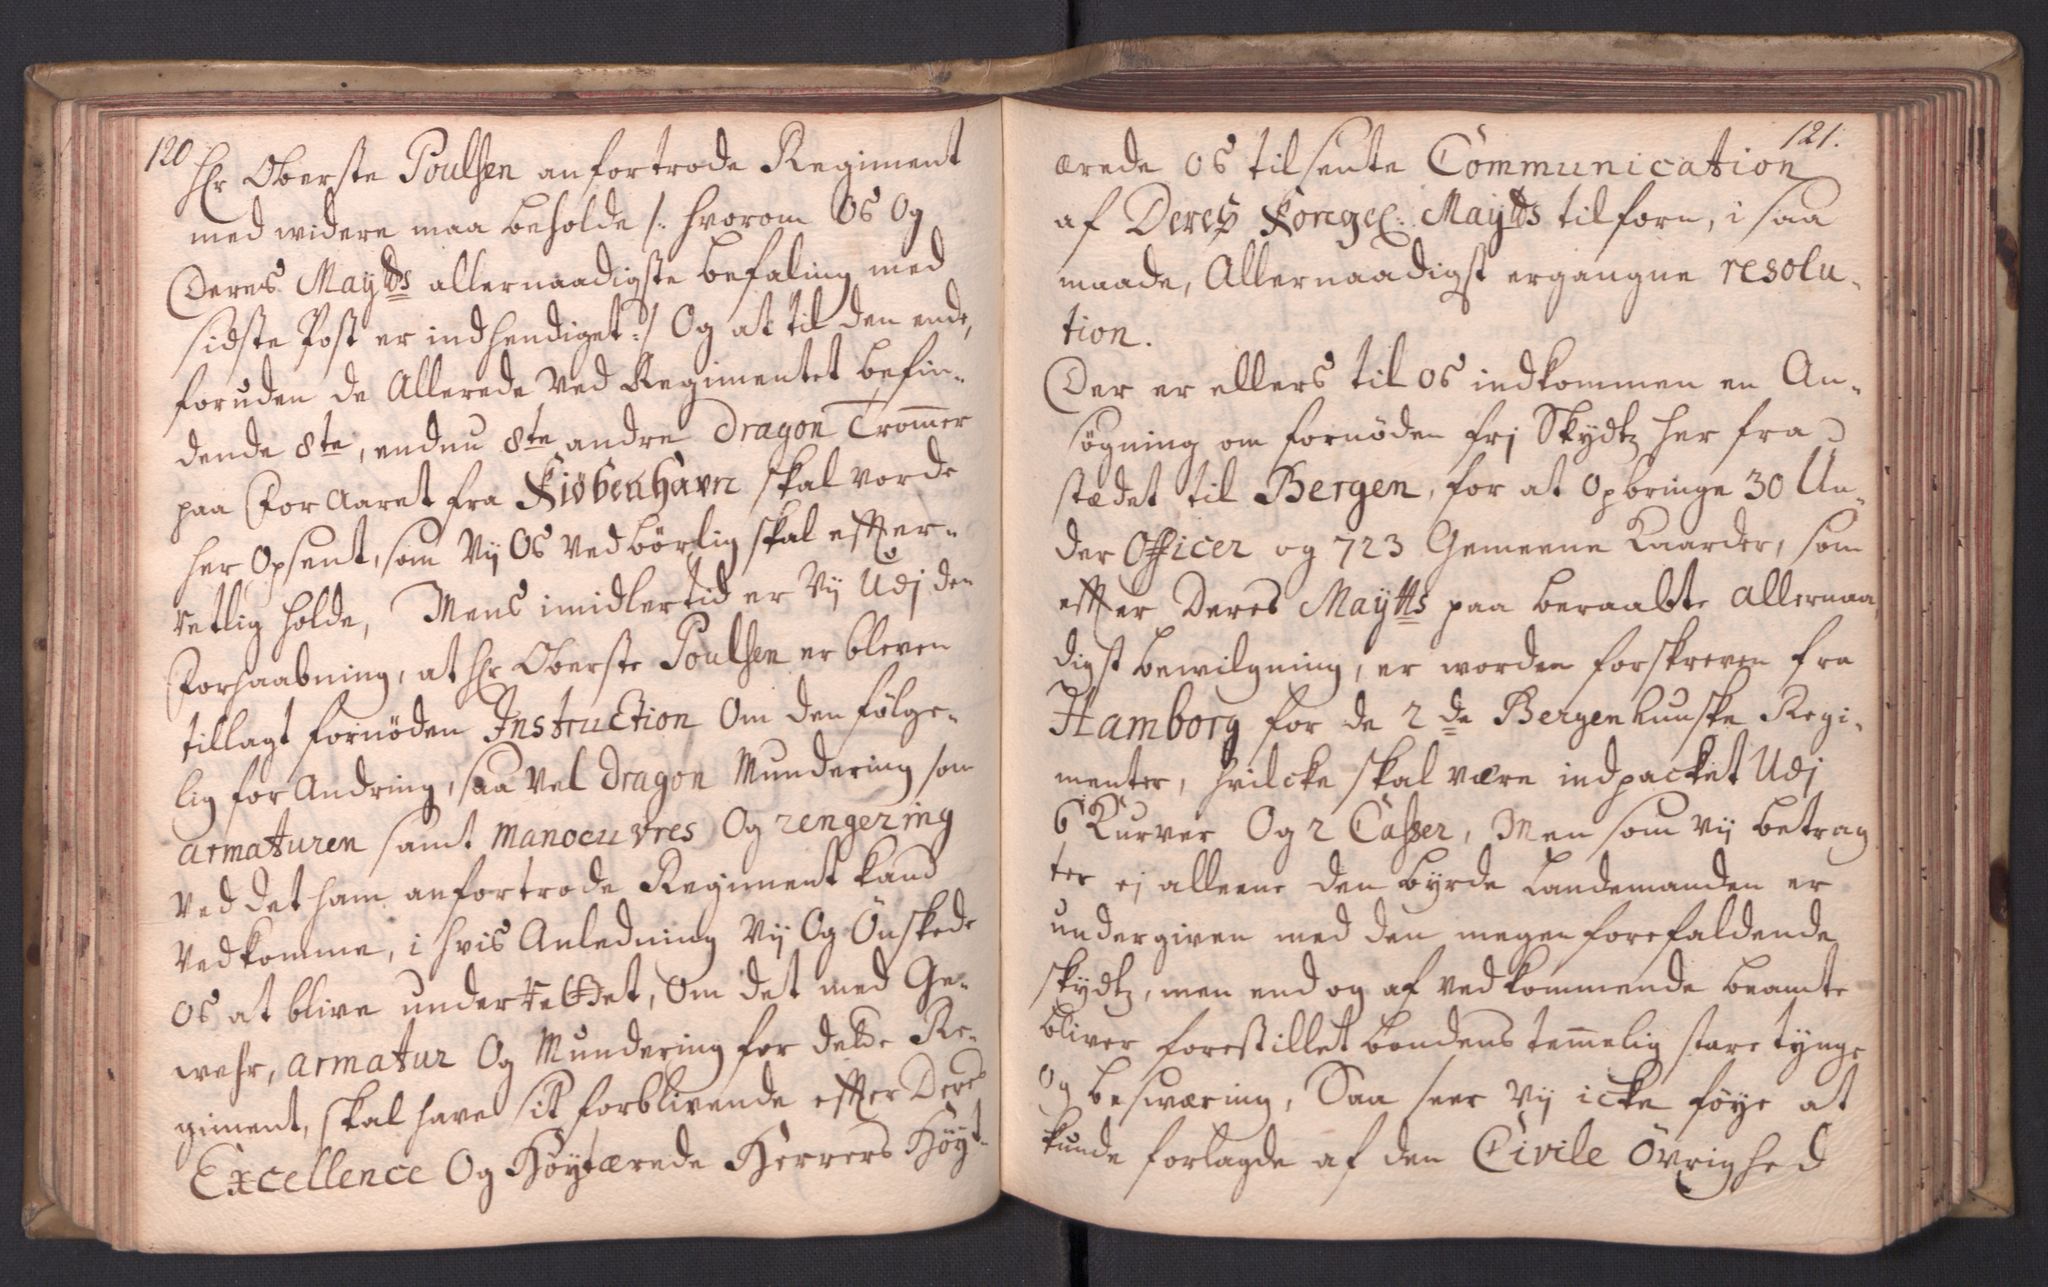 120
Hr Oberste Poulsen anfortrode Regiment
med widere maa beholde /: hvorom Os Og
Deres Maytts allernaadigste befaling med
sidste Post er indhendiget :/ Og at til den ende,
foruden de Allerede Ved Regimentet befin-
dende 8te, endnu 8te andre Dragon Trommer
paa Foraaret fra Kiøbenhavn skal vorde
her Opsent, som Vij Os Vedbörlig skal effter-
retlig holde, Mens imidlertid er Vij Udj den
Forhaabning, at Hr Oberste Poulsen er bleven
tillagt fornöden Instruction Om den fölge-
lig forAndring, saa Vel Dragon Mundering som
armaturen samt manoeuvres Og rengering
Ved det ham anfortrode Regiment kand
Vedkomme, i hvis Anledning Vij Og Önskede
Os at blive underrettet, Om det med Ge-
wehr, armatur Og Mundering for dette Re-
giment, skal have sit forblivende effter Deres
Excellence Og Höytærede Herrers Höyt-
121.
ærede Os tilsente Communication
af Deres Kongel: Maytts tilforn, i saa
maade, Allernaadigst ergangne resolu-
tion.
Der er ellers til Os indkommen en An-
søgning om fornöden frj Skydtz her fra
stædet til Bergen, for at Opbringe 30 Un-
der Officer og 723 Gemeene Kaarder, som
effter Deres Maytts paa beraabte allernaa-
digst bewilgning, er worden forskreven fra
Hamborg for de 2de Bergenhuuske Regi-
menter, hvilcke skal være indpacket Udj
6 Kurver Og 2 Casser, Men som vij betrag
ter ej alleene den byrde Landemanden er
undergiven med den megen forefaldende
skydtz, men end og af vedkommende beamte
bliver forestillet bondens temmelig store tynge
Og besværing, Saa seer Vij icke föye at
kunde forlagde af den Civile Övrighed